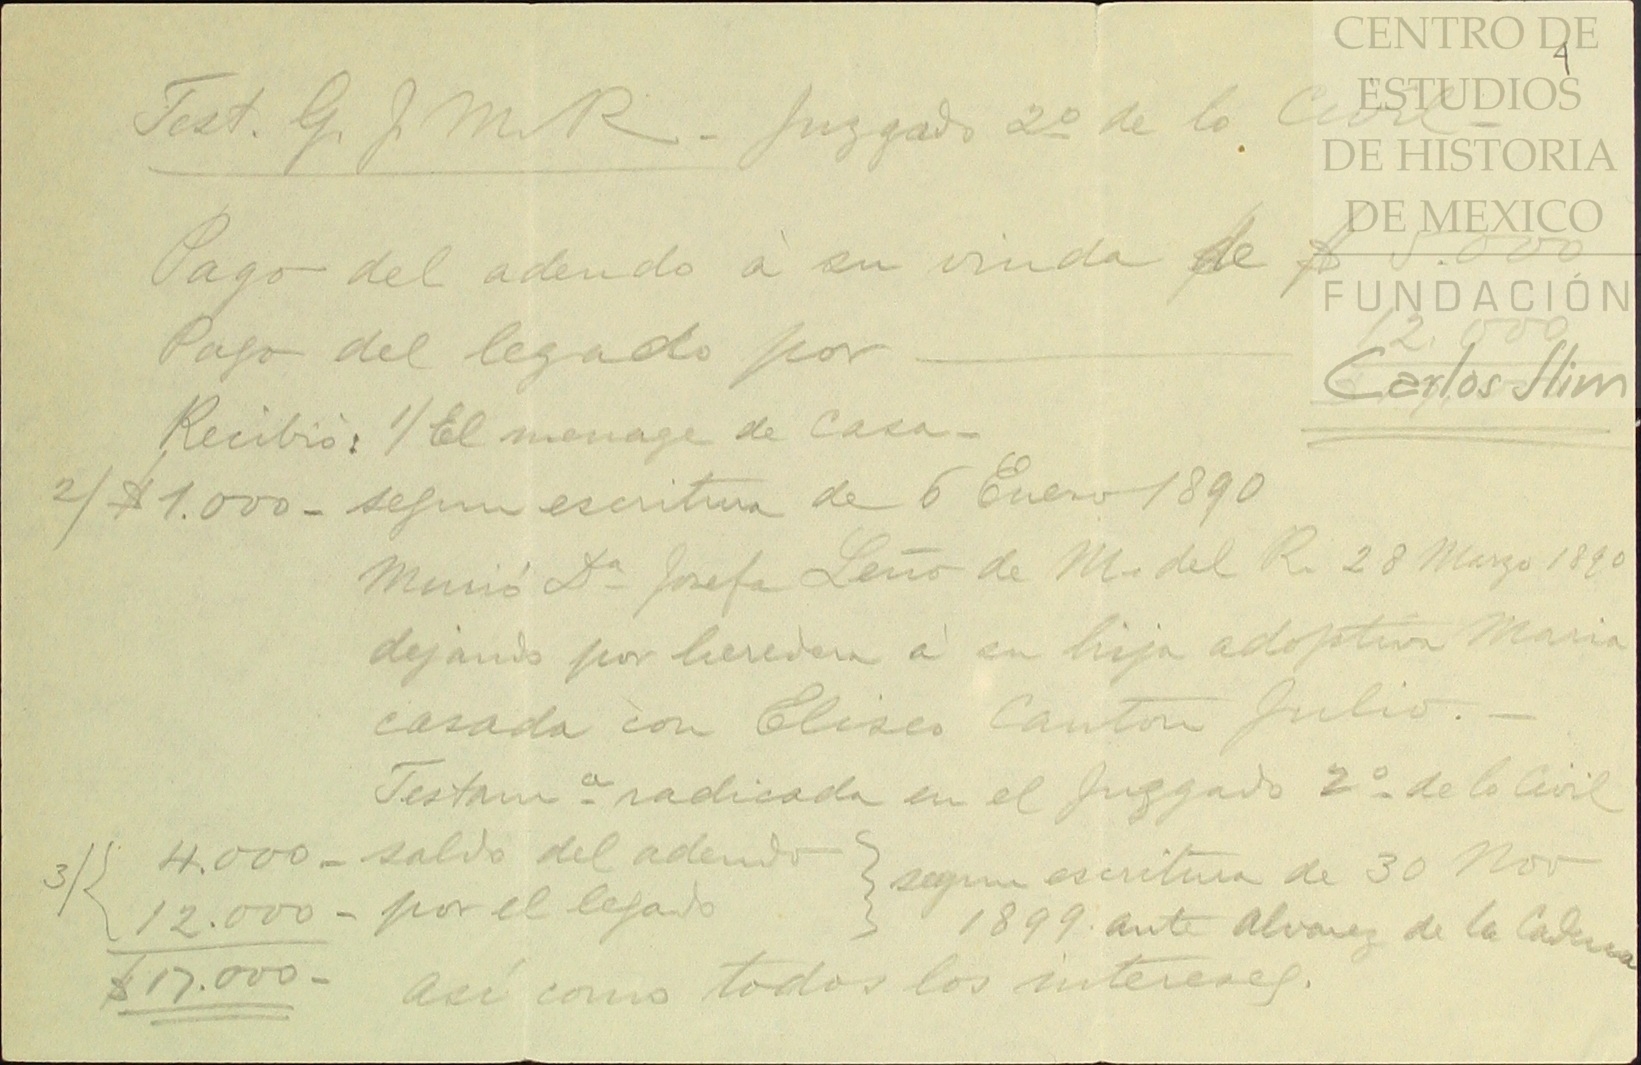 4
Test. G. J. M. R. - Juzgado 2º de lo Civil -
Pago del adeudo à su viuda de $ 5.000
Pago del legado por 12.000
Recibió: 1/ El menage de casa -
2/ $ 1.000 - segun escritura de 6 Enero 1890
Murió Dª Josefa Leño de M. del R. 28 Marzo 1890
dejando por heredera a su hija adoptiva Maria
casada con Eliseo Canton Julio. -
Testamª radicada en el Juzgado 2º de lo Civil
3/ { 4.000 - saldo del adeudo } segun escritura de 30 Nov
12.000 - por el legado 1899. ante Alvarez de la Cadena
$ 17.000 - así como todos los intereses.
CENTRO DE
ESTUDIOS
DE HISTORIA
DE MEXICO
FUNDACIÓN
Carlos Slim